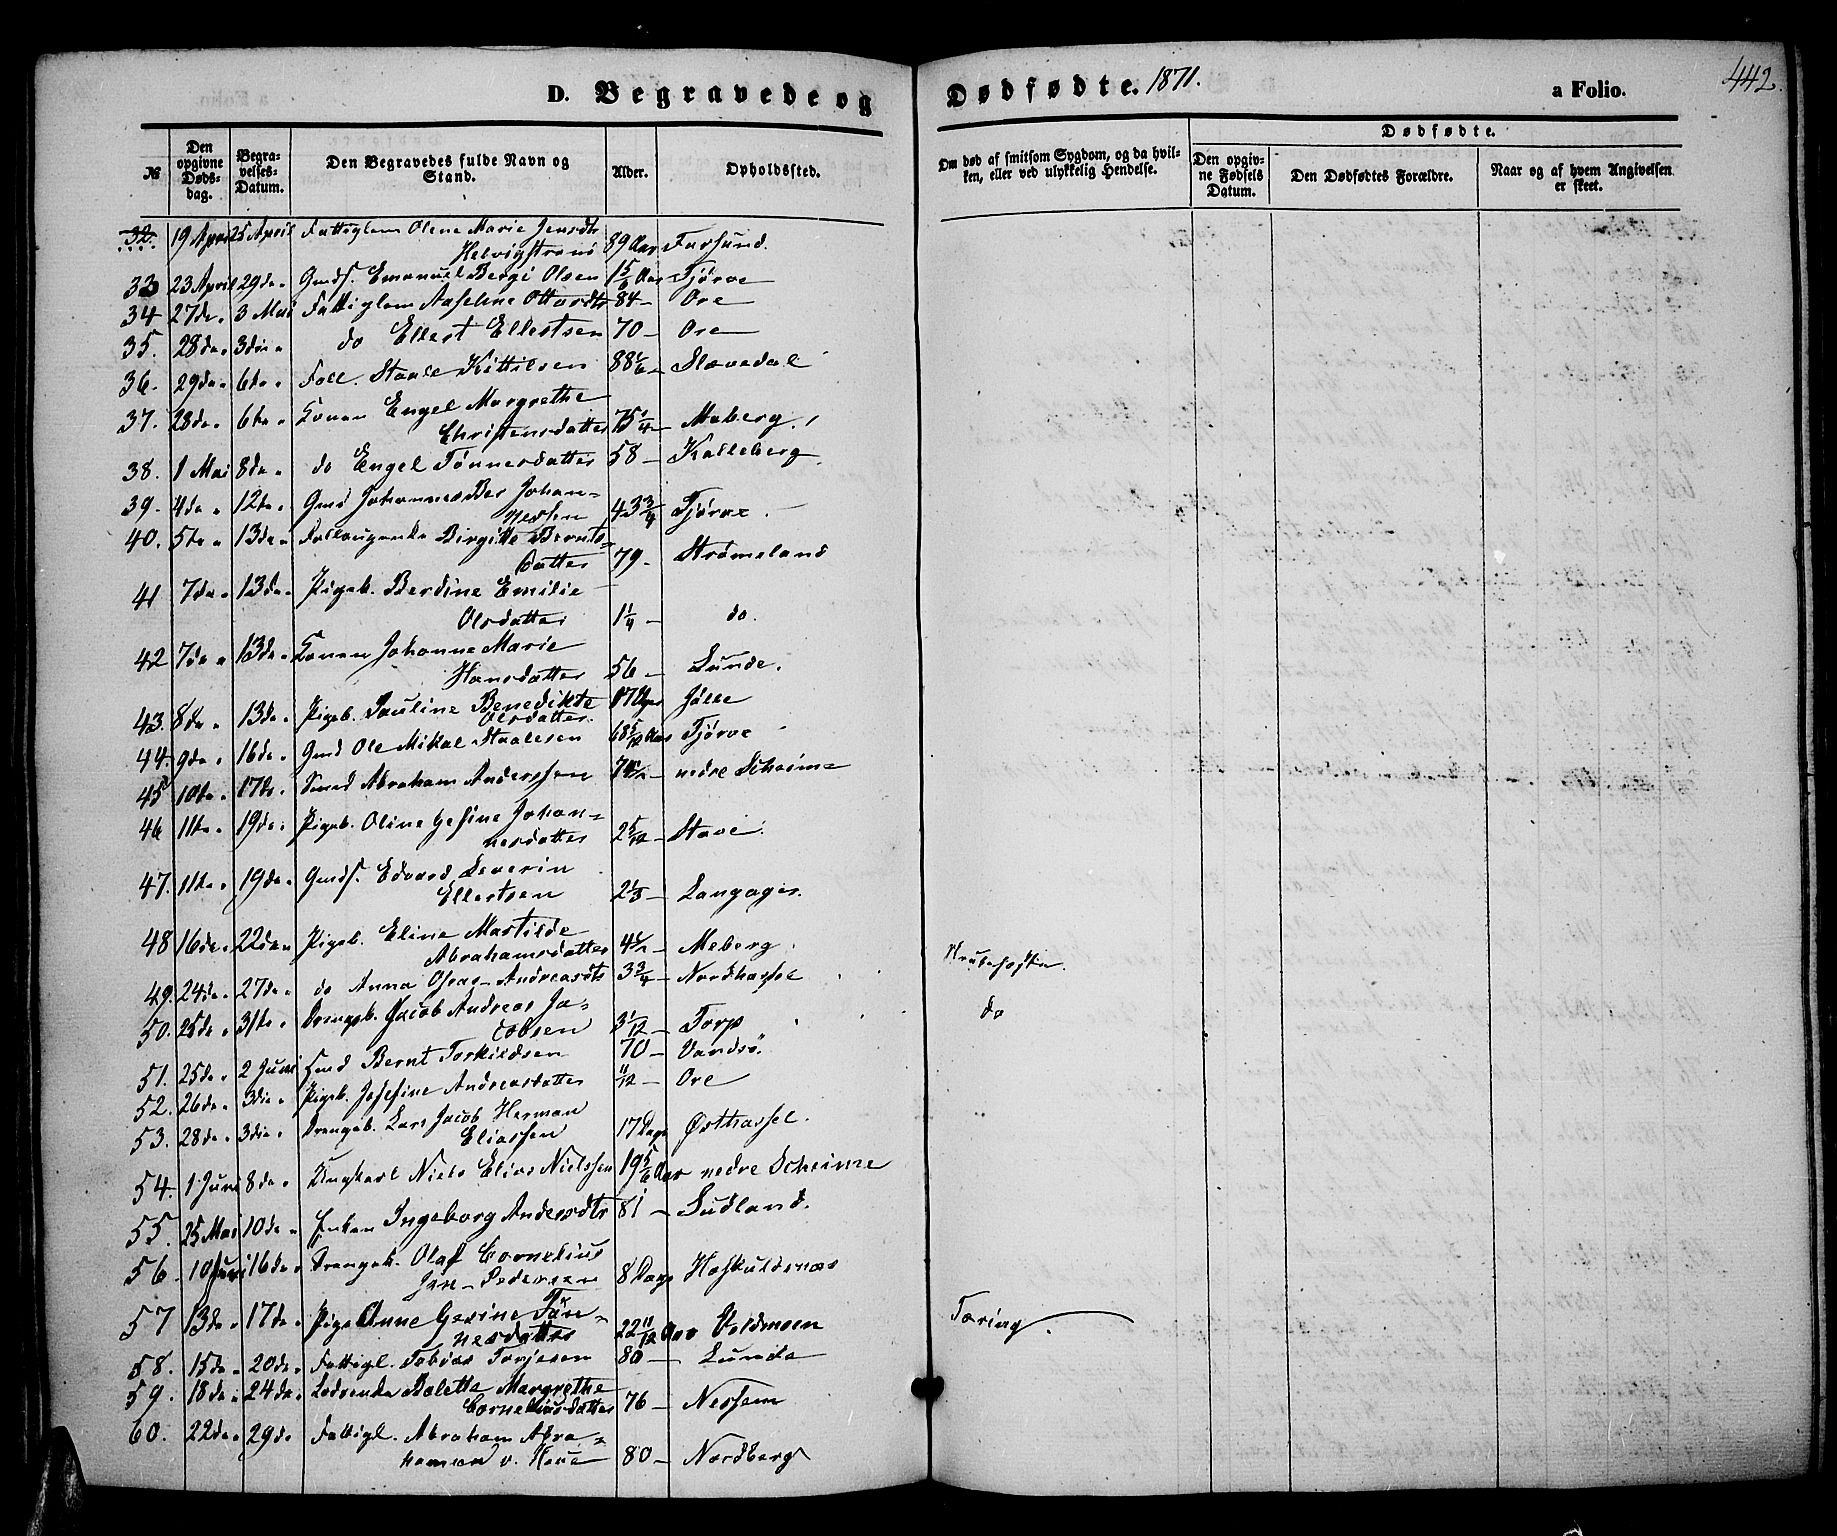 D. Begravede og Dødfødte. 1871. a Folio. 442.
№ Den opgivne Dødsdag. Begravelses-Datum. Den Begravedes fulde Navn og Stand. Alder. Opholdssted. Om død af smitsom Sygdom, og da hvilken, eller ved ulykkelig Hendelse. Dødfødte. Den opgivne Fødsels Datum. Den Dødfødtes Forældre. Naar og af hvem Angivelsen er skeet.
32. 19 April 25 April Fattiglem Olene Marie Jensdtr
Helvigstrøno 89 Aar Farsund.
33 23 April 29 de „ Gmds. Emanuel Bergi Olsen 1 5/6 Aar Tjørve
34 27 de „ 3 Mai Fattiglem Aseline Ottersdtr 84 – Ore
35. 28 de „ 3die „ do Ellert Ellertsen 70 – Ore
36. 29 de „ 6te „ Foll. Staale Kittilsen 88 1/6 – Slevedal
37. 28 de „ 6te „ Konen Engel Margrethe
Christensdatter 75 1/4 – Meberg.
38. 1 Mai 8de „ do Engel Tønnesdatter 58 – Kalleberg
39. 4de „ 12te „ Gmd Johannes Ber Johan=
nessen 43 3/4 Tjørve
40. 5te „ 13de „ Follaugenke Birgitte Bernts=
datter 79. Strømsland
41 7de „ 13de „ Pigeb. Berdine Emilie
Olsdatter 1 1/4 – do.
42 7de „ 13de „ Konen Johanne Marie
Hansdatter 56 – Lunde.
43. 8de „ 13de „ Pigeb. Pauline Benedikte
Olsdatter. 17 Uger Jølle
44. 9de „ 16de „ Gmd Ole Mikal Staalesen 68 5/12 Aar Tjørve
45 10de „ 17de „ Smed Abraham Anderssen nedre Scheime
46 11te „ 19de „ Pigeb. Oline Gesine Johan=
nesdatter 2 5/12 – Stave.
47. 11te „ 19de „ Gmds. Edvard Severin
Ellertsen 2 1/3 – Langager.
48 16de „ 22de „ Pigeb. Eline Mastilde
Abrahamsdatter 4 1/2 – Meberg. Strubehoste.
49. 24de „ 27de „ do Anna Andreasdtr 3 3/4 – Nordhassel
50. 25de „ 31te „ Drengeb. Jacob Andreas Ja=
cobsen 3 1/12 – Torp do
51. 25de „ 2 Juni Gmd Bernt Torkildsen 70 – Vandsø.
52. 26de „ 3die „ Pigeb. Josefine Andreasdatter 11/12 – Ore
53. 28de „ 3die „ Drengeb. Lars Jacob Herman
Eliassen 17 Dage Østhassel.
54. 1 Juni 8de „ Ungkarl Niels Elias Nielssen 19 5/6 Aar nedre Scheime
55. 25 Mai 10de „ Enken Ingeborg Andersdtr 81 – Sudland.
56. 10 Juni 16de „ Drengeb. Olaf Cornelius
Jan – Pedersen 8 Dage Høskuldsnæs
57 13de „ 17de „ Pige Anne Gesine Tøn=
nesdatter 22 11/12 Aar Voldmoen Tæring.
58. 15de „ 20de „ Fattigl. Tobias Torjesen 80 – Lunde
59. 18de „ 24de „ Lodsenke Bolette Margrethe
Corneliusdatter 76 – Nessem
60. 22de „ 29de Fattigl. Abraham Abra=
hamsen v. Haue 80 – Nordberg